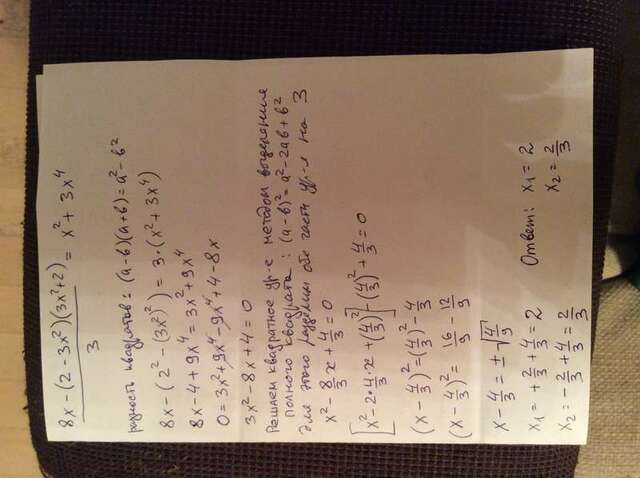 (8x - (2 - 3x²)(3x² + 2)) / 3 = x² + 3x⁴
разность квадратов: (a-в)(a+в) = a² - в²
8x - (2² - (3x²)²) = 3·(x² + 3x⁴)
8x - 4 + 9x⁴ = 3x² + 9x⁴
0 = 3x² + 9x⁴ - 9x⁴ + 4 - 8x
3x² - 8x + 4 = 0
Решаем квадратное ур-е методом выделения
полного квадрата: (a-в)² = a² - 2aв + в²
для этого разделим обе части ур-я на 3
x² - 8/3 x + 4/3 = 0
[x² - 2·4/3·x + (4/3)²] - (4/3)² + 4/3 = 0
(x - 4/3)² = (4/3)² - 4/3
(x - 4/3)² = 16/9 - 12/9
x - 4/3 = ± √4/9
x₁ = + 2/3 + 4/3 = 2
x₂ = - 2/3 + 4/3 = 2/3
Ответ: x₁ = 2
x₂ = 2/3